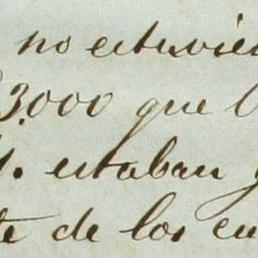 no estuvie
3.000 que
estaban
te de los